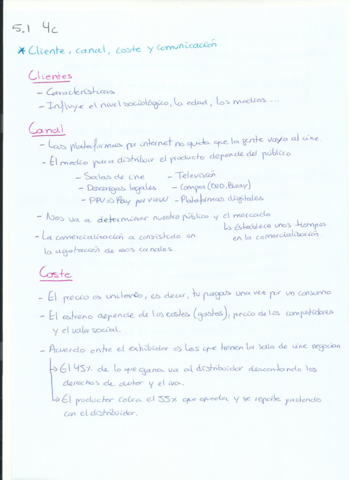 5.1 4c
* Cliente, canal, coste y comunicación
Clientes
- Características
- Influye el nivel sociológico, la edad, los medios....
Canal
- Las plataformas por internet no quita que la gente vaya al cine.
- El medio para distribuir el producto depende del público
- Salas de cine - Televisión
- Descargas legales - Compra (DVD, Bluray)
- PPV o Pay per view - Plataformas digitales
- Nos va a determinar nuestro público y el mercado
↳ Establece unos tiempos en la comercialización
- La comercialización a consistido en
la agotración de esos canales.
Coste
- El precio es unitario, es decir, tu pagas una vez por un consumo
- El estreno depende de los costes (gastos), precio de los competidores
y el valor social.
- Acuerdo entre el exhibidor es los que tienen la sala de cine negocian
→ El 45% de lo que gana va al distribuidor descontando los
derechos de autor y el iva.
→ El productor cobra el 55% que queda y se reparte pactando
con el distribuidor.